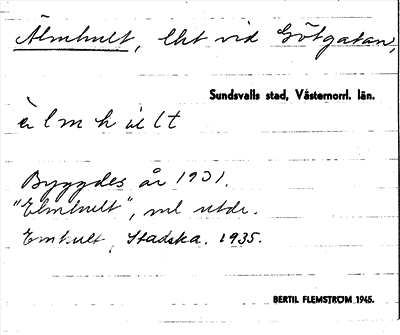 Älmhult, lht vid Götgatan,
Sundsvalls stad, Västernorrl. län.
älmhult
Byggdes år 1931.
"Elmhult", enl utdr.
Emhult, Stadska. 1935.
BERTIL FLEMSTRÖM 1945.